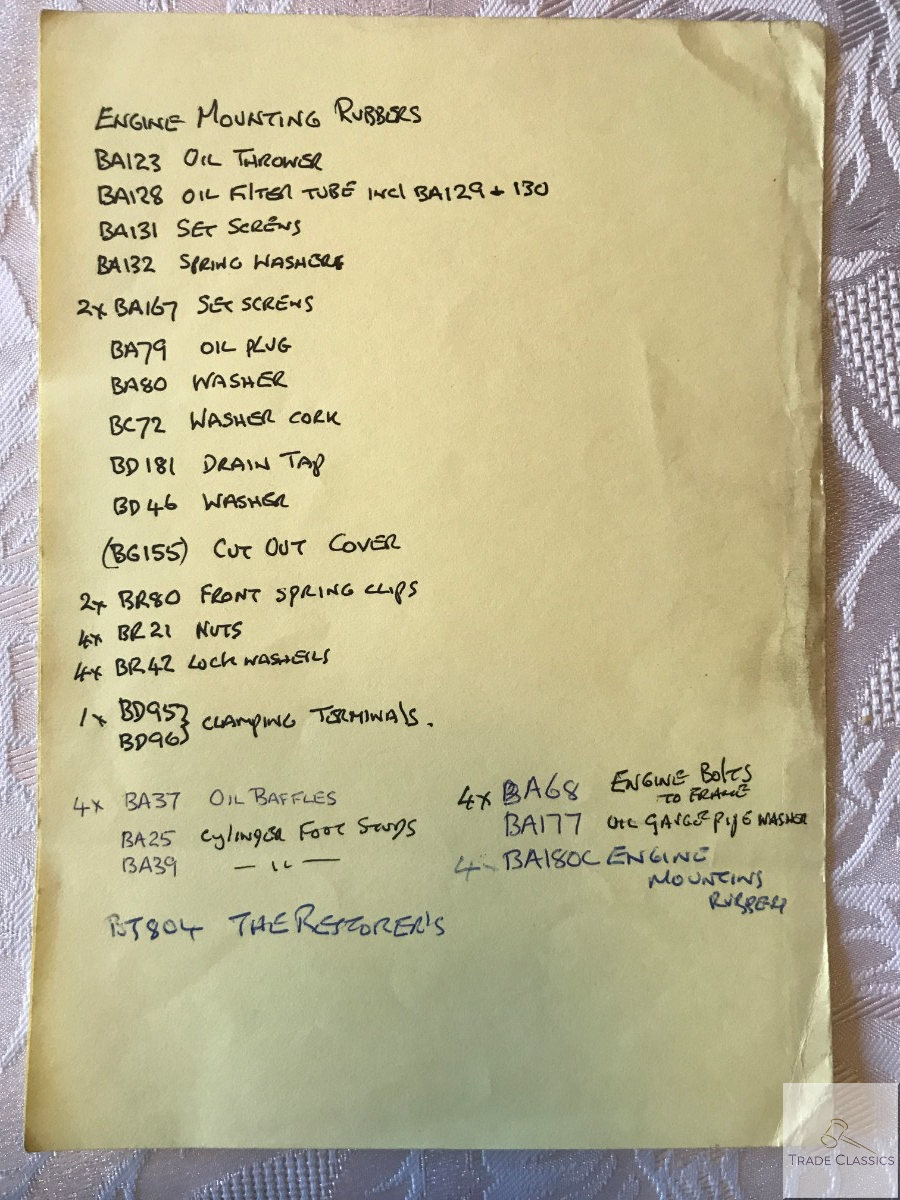 ENGINE MOUNTING RUBBERS
BA123 OIL THROWER
BA128 OIL FILTER TUBE INCl BA129 + 130
BA131 SET SCREWS
BA132 SPRING WASHERS
2x BA167 SET SCREWS
BA79 OIL PLUG
BA80 WASHER
BC72 WASHER CORK
BD181 DRAIN TAP
BD46 WASHER
(BG155) CUT OUT COVER
2x BR80 FRONT SPRING CLIPS
4x BR21 NUTS
4x BR42 LOCK WASHERS
1x BD95 } CLAMPING TERMINALS.
BD96
4x BA37 OIL BAFFLES
BA25 CYLINDER FOOT STUDS
BA39 — 11 —
BT804 THE RESTORER'S
4x BA68 ENGINE BOLTS
TO FRAME
BA177 OIL GAUGE PIPE WASHER
4 BA180C ENGINE
MOUNTING
RUBBER
TRADE CLASSICS